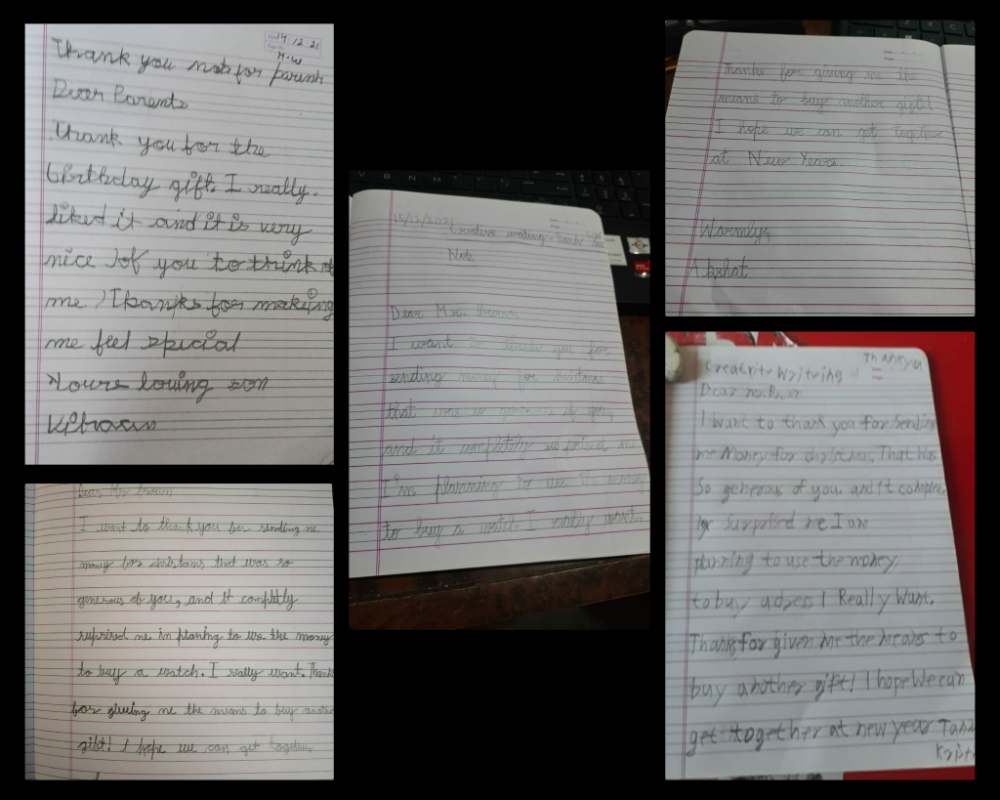 19.12.21
H.W
Thank you not for parents
Dear Parents
Thank you for the
birthday gift. I really
liked it and it is very
nice of you to think of
me Thanks for making
me feel special
Youre loving son
Dear Mr brown
I want to thank you for sending me
money for
that was so
generous of you, and it compltly
me im planing to the money
to buy a watch. I really want. Thank
for me the means to buy another
gift! I hope we can get together
Creative writing
Note
Dear
I want to thank you for
sending money for
that was so generous of you,
and it completely me
I'm planning to use the money
to buy a watch. I really want.
Thanks for giving me the
means to buy another gift!
I hope we can get together
at New Years.
Warmly,
Akshat
Thankyou
Writring
Dear
I want to thank you for Sending
me Money for That Was
So generous of you and it comple
ly Surprised me I am
planning to use the money
to buy a I Really Want.
Thanks for given me the means to
buy another gift! I hope We can
get together at new year